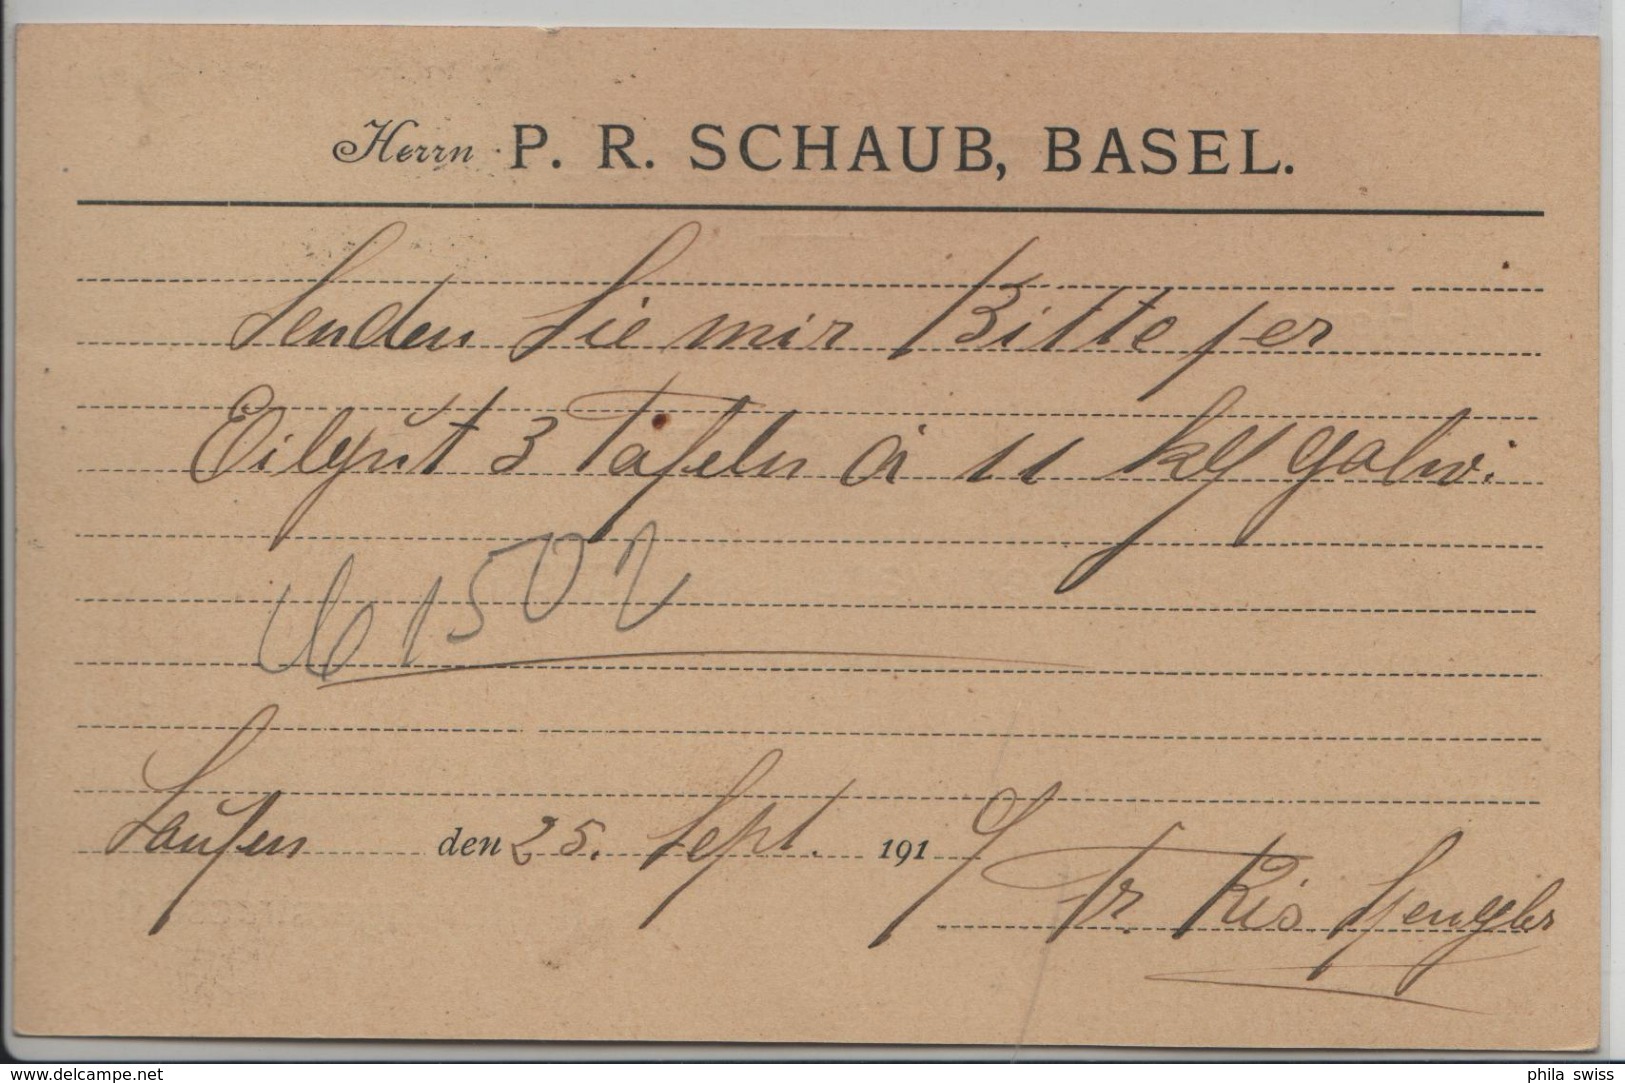 Herrn P. R. SCHAUB, BASEL.
Senden Sie mir Bitte per
Eilgut 3 Tafeln à 11 kg galw.
Laufen den 25. Sept. 1919
Fr. Ris
www.delcampe.net
phila_swiss